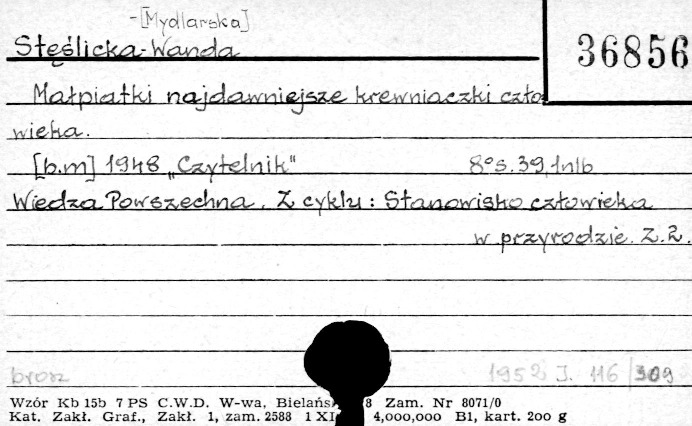 -[Mydlarska]
Stęślicka-Wanda
36856
Małpiatki najdawniejsze krewniaczki czło-
wieka.
[b.m] 1948 „Czytelnik" 8° s. 39, 1nlb
Wiedza Powszechna. Z cyklu: Stanowisko człowieka
w przyrodzie. Z. 2.
brosz 1952 I. 116/309
Wzór Kb 15b 7 PS C.W.D. W-wa, 8 Zam. Nr 8071/0
Kat. Zakł. Graf., Zakł. 1, zam. 2588 1 XI 4,000,000 B1, kart. 200 g